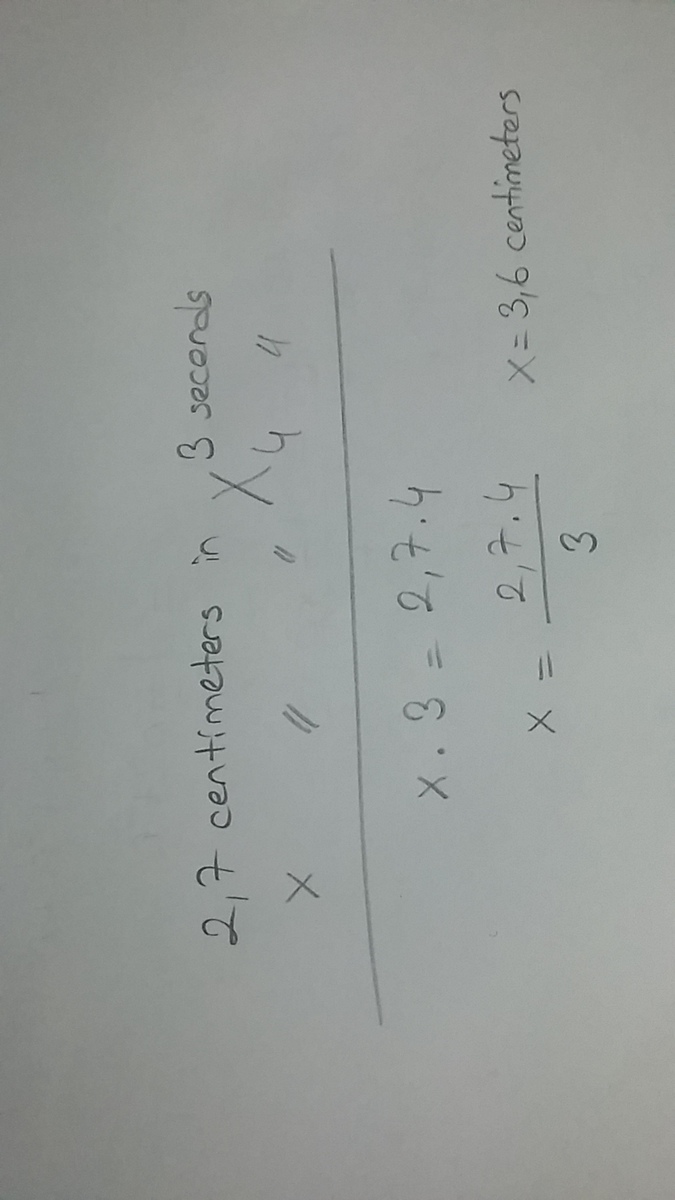 2,7 centimeters in 3 seconds
x " " 4 "
x . 3 = 2,7 . 4
x = 2,7 . 4 / 3 x = 3,6 centimeters